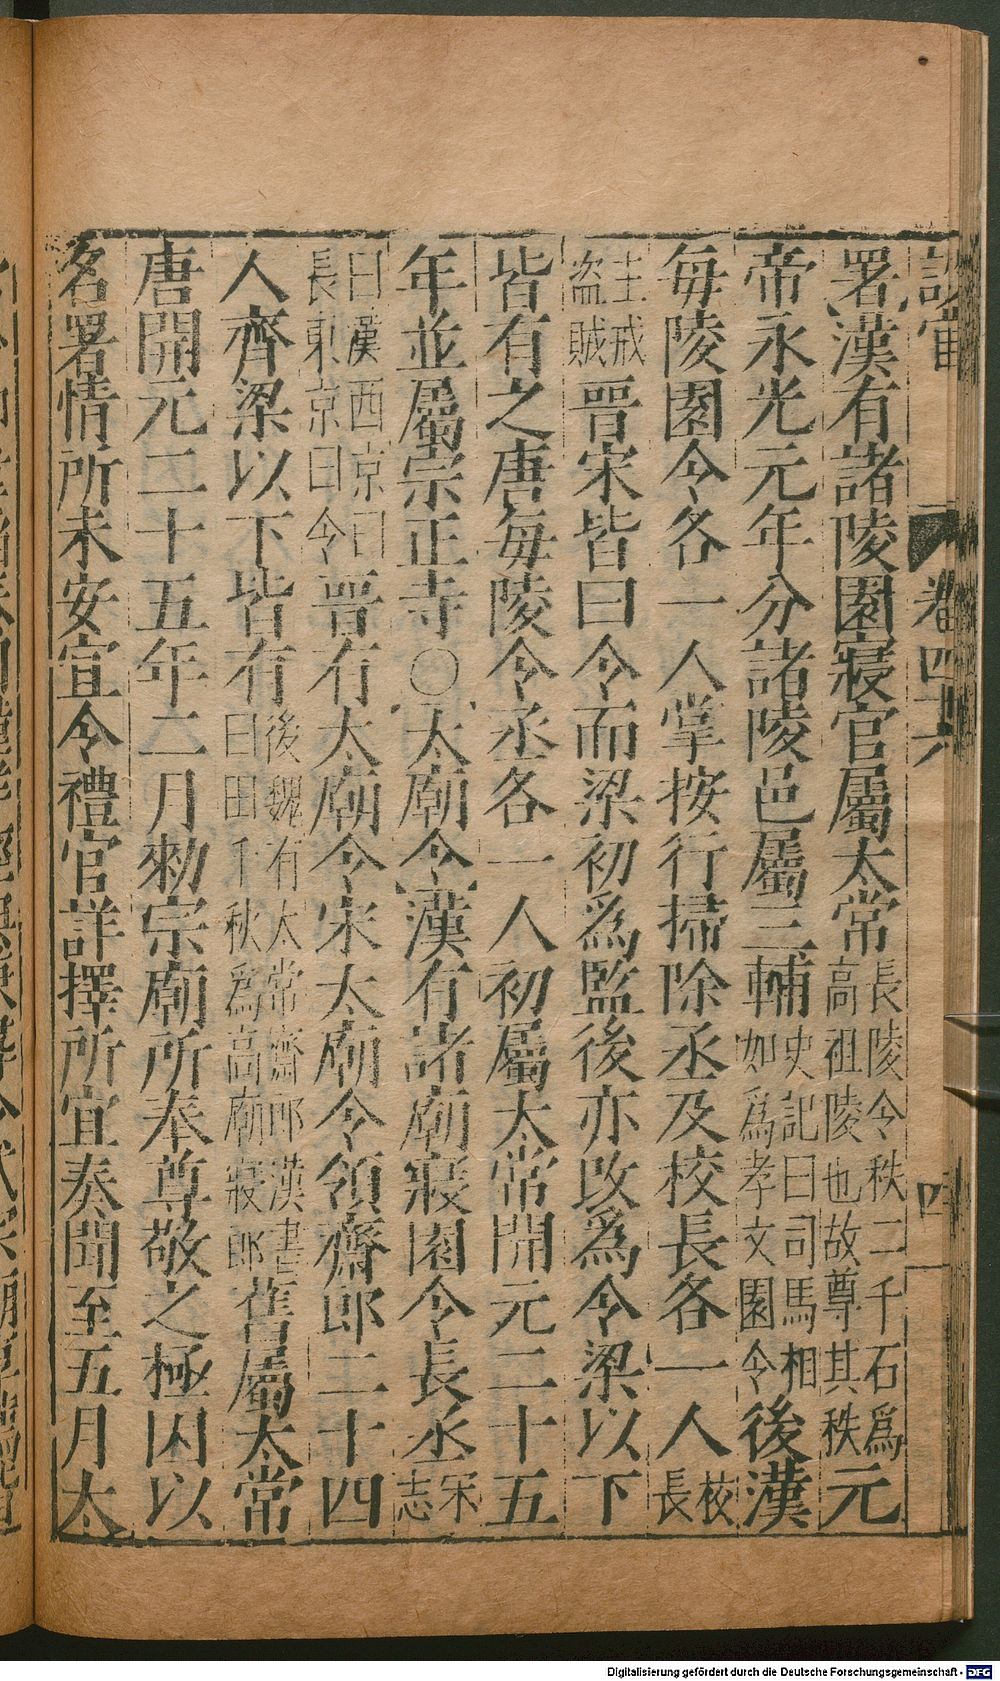 卷四十六
四
署漢有諸陵園寢官屬太常長陵令秩二千石爲高祖陵也故尊其秩元
帝永光元年分諸陵邑屬三輔史記曰司馬相如爲孝文園令後漢
每陵園令各一人掌按行掃除丞及校長各一人校長
主戒盗賊晉宋皆曰令而梁初爲監後亦改爲令梁以下
皆有之唐每陵令丞各一人初屬太常開元二十五
年並屬宗正寺○太廟令漢有諸廟寢園令長丞宋志
曰漢西京曰長東京曰令晉有太廟令宋太廟令領齋郎二十四
人齊梁以下皆有後魏有太常齋郎漢書曰田千秋爲高廟寢郎舊屬太常
唐開元二十五年二月勑宗廟所奉尊敬之極因以
名署情所未安宜令禮官詳擇所宜奏聞至五月太
Digitalisierung gefördert durch die Deutsche Forschungsgemeinschaft - DFG